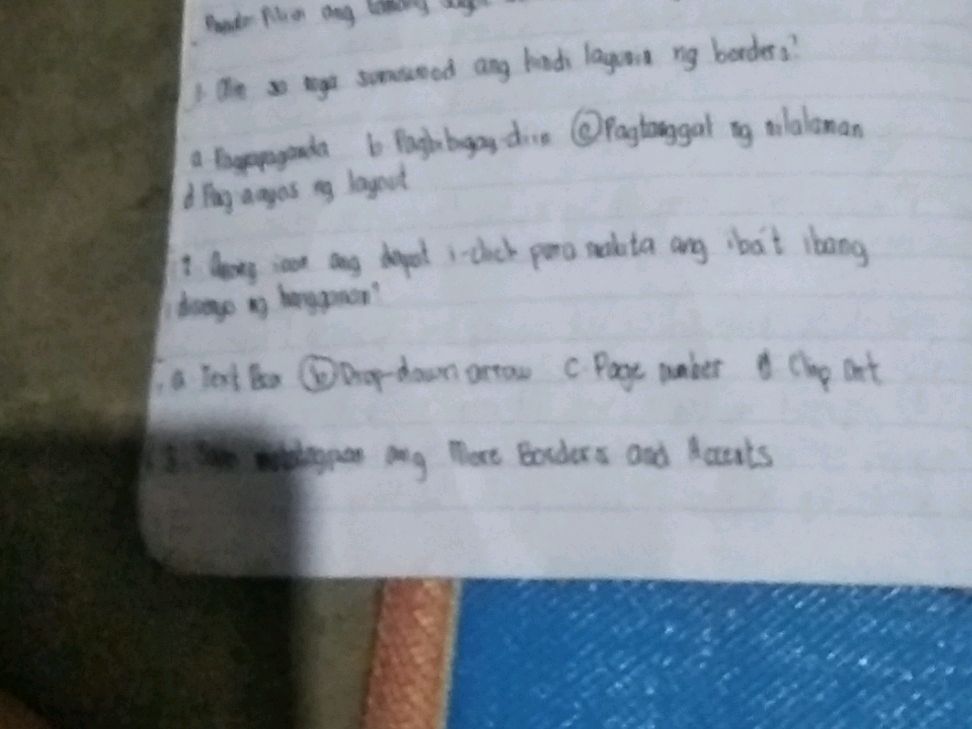 ang
sa mga sumusunod ang hindi layunin ng borders?
a Pagpapaganda b Pagbibigay-diin c Pagtanggal ng nilalaman
d Pag aayos ng layout
icon ang dapat i-click para makita ang iba't ibang
disenyo ng hangganan?
a Text Box b Drop-down arrow c Page number d Clip art
ang More Borders and Accents